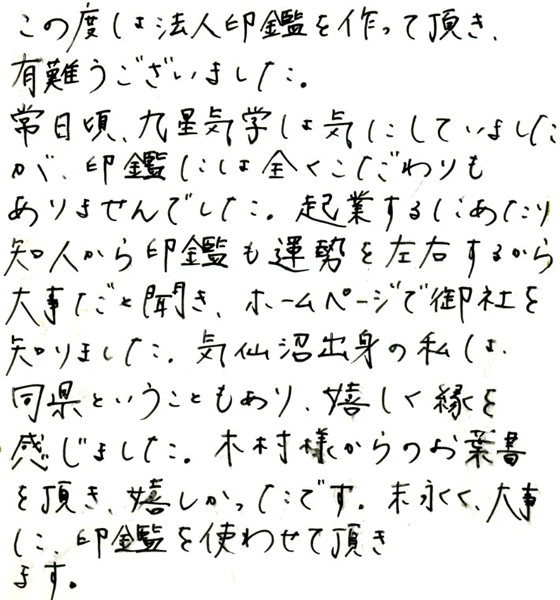 この度は法人印鑑を作って頂き、
有難うございました。
常日頃、九星気学は気にしていました
が、印鑑には全くこだわりも
ありませんでした。起業するにあたり
知人から印鑑も運勢を左右するから
大事だと聞き、ホームページで御社を
知りました。気仙沼出身の私は、
同県ということもあり、嬉しく縁を
感じました。木村様からのお葉書
を頂き、嬉しかったです。末永く、大事
に、印鑑を使わせて頂き
ます。